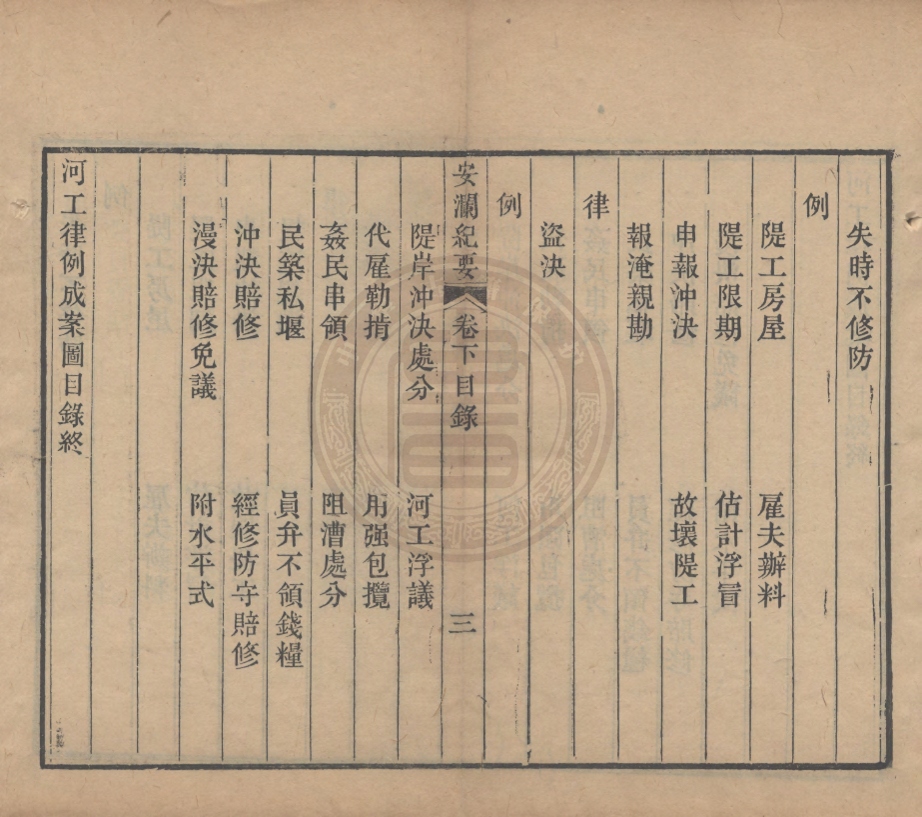 失時不修防
例
隄工房屋　雇夫辦料
隄工限期　估計浮冒
申報沖決　故壞隄工
報淹親勘
律
盜決
例
安瀾紀要　卷下目錄　三
隄岸沖決處分　河工浮議
代雇勒掯　用强包攬
姦民串領　阻漕處分
民築私堰　員弁不領錢糧
沖決賠修　經修防守賠修
漫決賠修免議　附水平式
河工律例成案圖目錄終